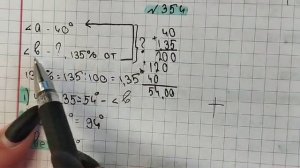 №354
<a - 40°
<b - ?, 135% от
?
40
1,35
200
120
40
54,00
% = 135:100 = 1,35
1)
35 = 54° - <b
° = 94°